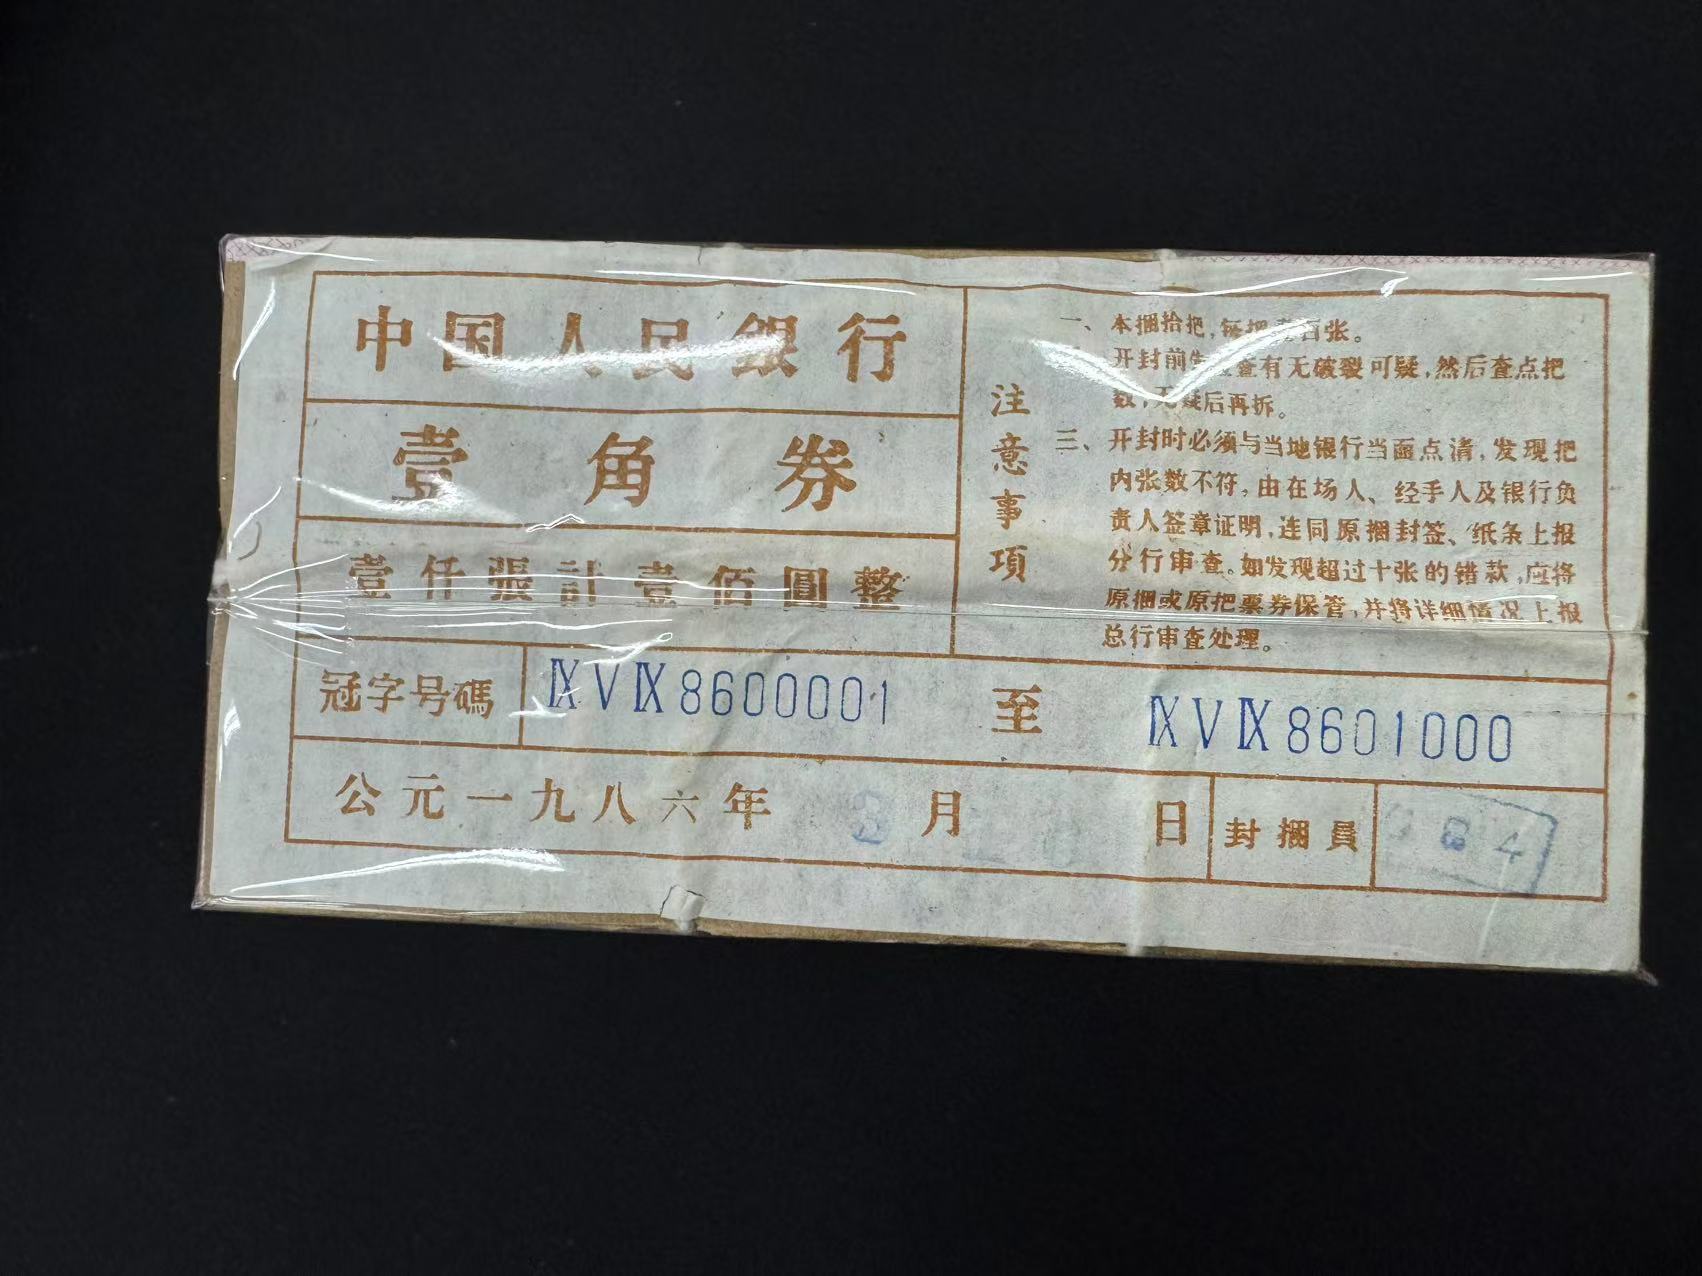 中国人民銀行
壹角券
壹仟張計壹佰圓整
注意事項
一、本捆拾把,每把壹百张。
开封前先检查有无破裂可疑,然后查点把
数,无疑后再拆。
三、开封时必须与当地银行当面点清,发现把
内张数不符,由在场人、经手人及银行负
责人签章证明,连同原捆封签、纸条上报
分行审查。如发现超过十张的错款,应将
原捆或原把票券保管,并将详细情况上报
总行审查处理。
冠字号碼 ⅨⅤⅨ8600001 至 ⅨⅤⅨ8601000
公元一九八六年 月 日 封捆員 84